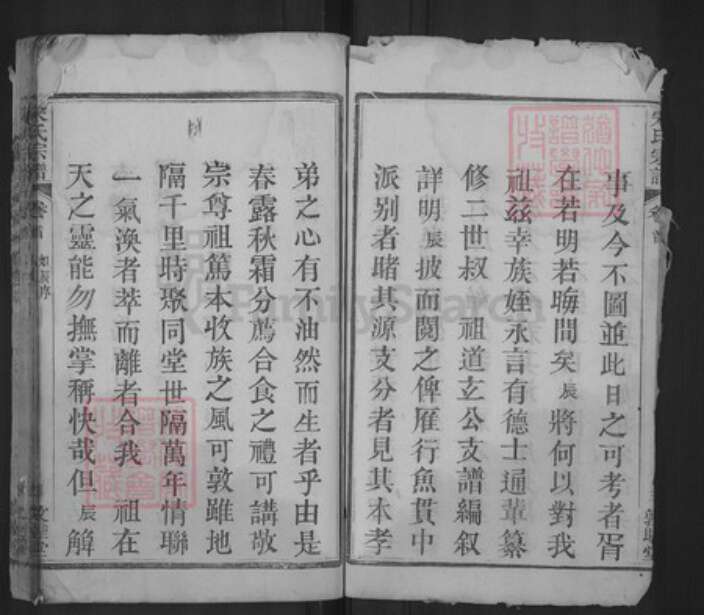 事及今不圖並此日之可考者胥
在若明若晦間矣辰將何以對我
祖茲幸族姪永言有德士通輩纂
修二世叔祖道玄公支譜編叙
詳明辰披而閱之俾雁行魚貫中
派别者睹其源支分者見其本孝
弟之心有不油然而生者乎由是
春露秋霜分薦合食之禮可講敬
宗尊祖篤本收族之風可敦雖地
隔千里時聚同堂世隔萬年情聯
一氣渙者萃而離者合我祖在
天之靈能勿撫掌稱快哉但辰觧
氏宗譜
卷首
FamilySearch